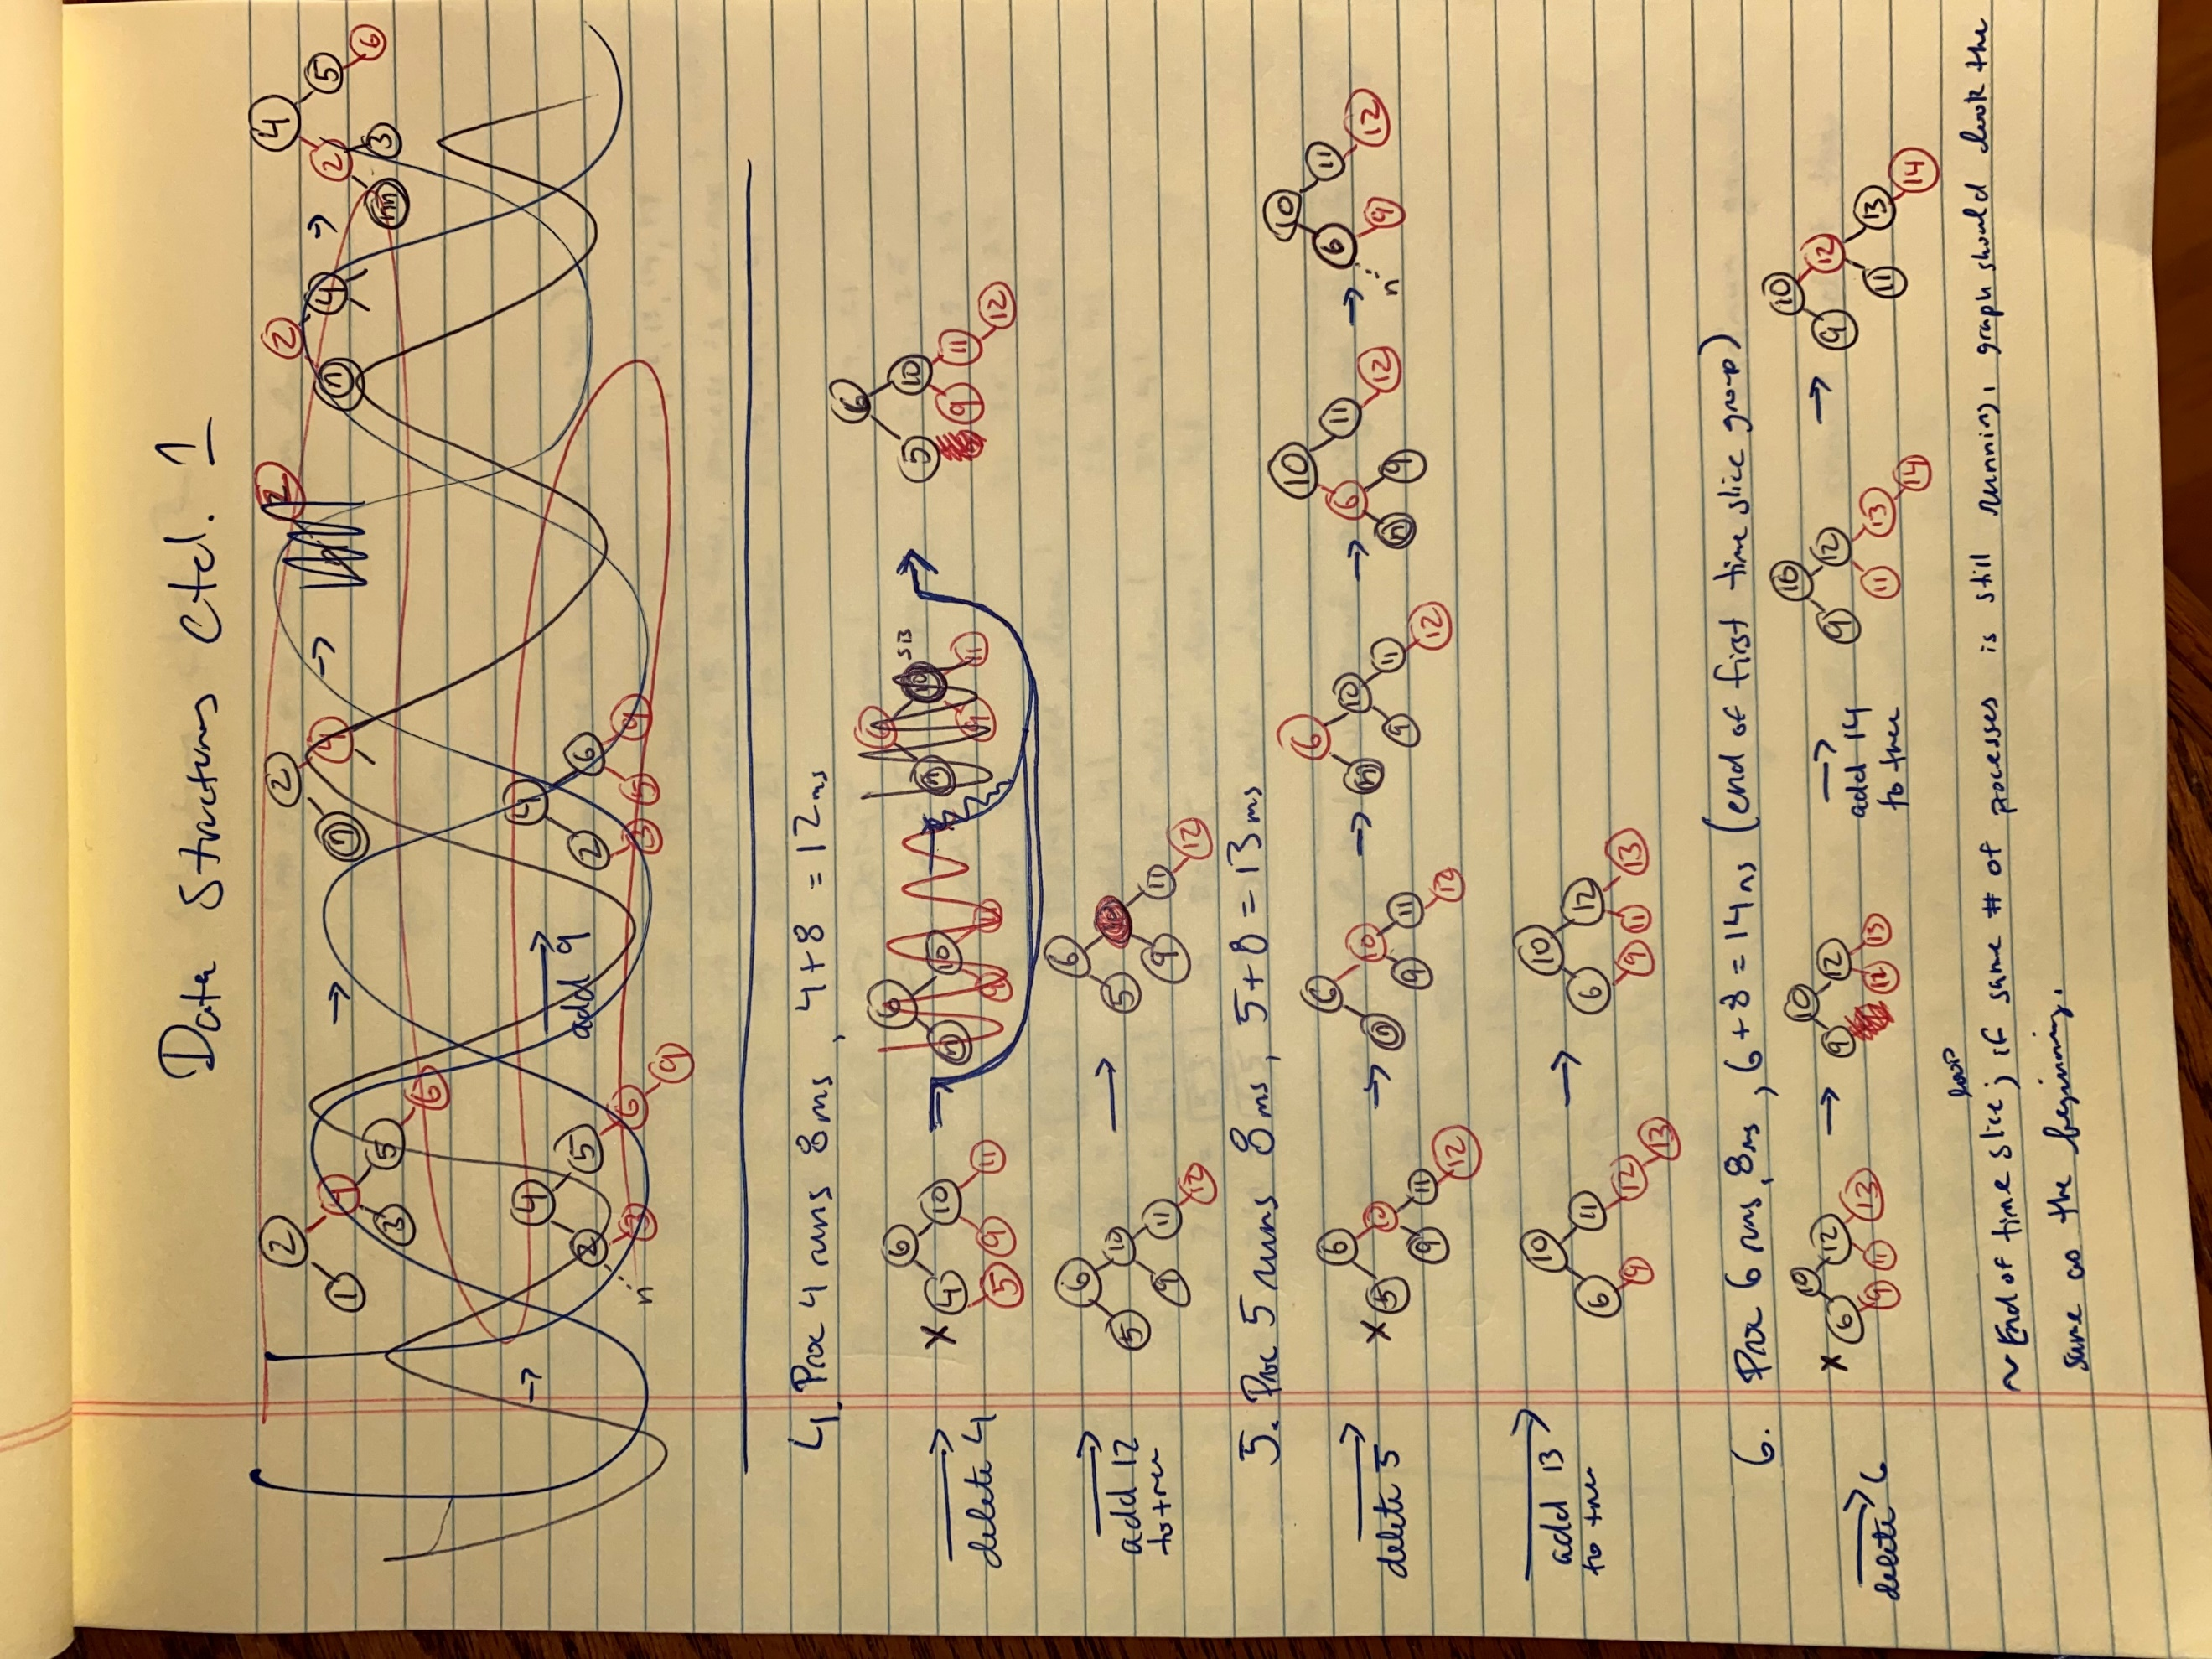 Data Structures Ctd. 1
2 1 4 3 5 6
2 n 4
2 n 4
2
4 2 5 n 3 6
4 2 5 3 6 9 n
add 9
4 2 6 3 5 9
4. Proc 4 runs 8ms, 4+8 = 12ms
delete 4
x 6 4 10 5 9 11
6 n 10 9 11
6 5 10 9 11 12
add 12
to tree
6 5 10 9 11 12
6 5 9 11 12
5. Proc 5 runs 8ms, 5+8 = 13ms
delete 5
x 6 5 10 9 11 12
6 n 10 9 11 12
6 n 10 9 11 12
10 6 11 n 9 12
10 6 11 n 9 12
add 13
to tree
10 6 11 9 12 13
10 6 12 9 11 13
6. Proc 6 runs 8ms, 6+8 = 14ms (end of first time slice group)
delete 6
x 10 6 12 9 11 13
10 9 12 12 13
add 14
to tree
10 9 12 11 13 14
10 9 12 11 13 14
~ End of time slice; if same # of processes is still running, graph should look the
same as the beginning.